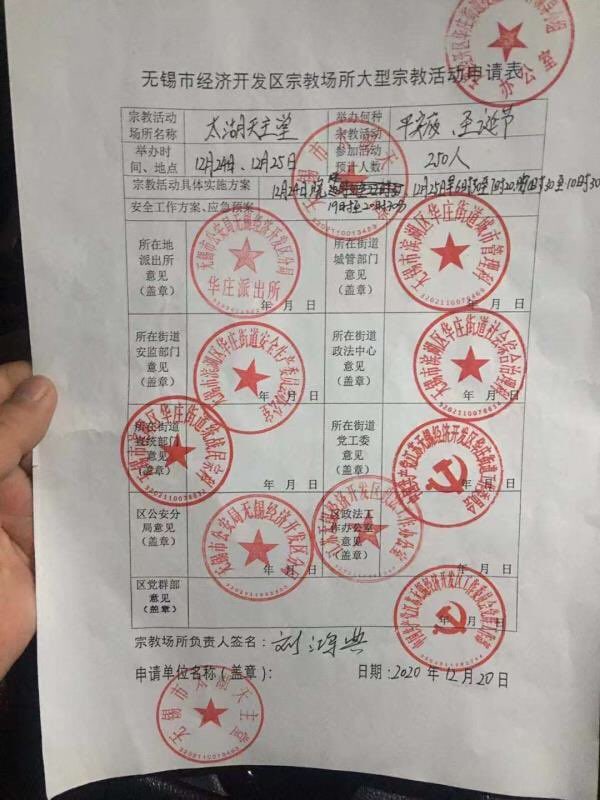 办公室
无锡市经济开发区宗教场所大型宗教活动申请表
宗教活动场所名称 太湖天主堂 举办何种宗教活动 平安夜、圣诞节
举办时间、地点 12月24日、12月25日 参加活动预计人数 250人
宗教活动具体实施方案 12月24日晚 12月25日
安全工作方案、应急预案 19时至20时30分
所在地派出所意见（盖章） 年 月 日
无锡市公安局无锡经济开发区分局
华庄派出所
所在街道城管部门意见（盖章） 年 月 日
无锡市滨湖区华庄街道城市管理科
3202110078469
所在街道安监部门意见（盖章） 年 月 日
无锡市滨湖区华庄街道安全生产委员会办公室
所在街道政法中心意见（盖章） 年 月 日
无锡市滨湖区华庄街道社会综合治理
所在街道宣统部门意见（盖章） 年 月 日
无锡市滨湖区华庄街道统战民宗科
所在街道党工委意见（盖章） 年 月 日
中国共产党江苏无锡经济开发区华庄街道工作委员会
区公安分局意见（盖章） 年 月 日
无锡市公安局无锡经济开发区分局
区政法工作办公室意见（盖章） 年 月 日
区党群部意见（盖章） 年 月 日
中国共产党江苏无锡经济开发区工作委员会党群工作部
宗教场所负责人签名：
申请单位名称（盖章）： 日期：2020年12月20日
无锡市太湖天主堂
3202110013453